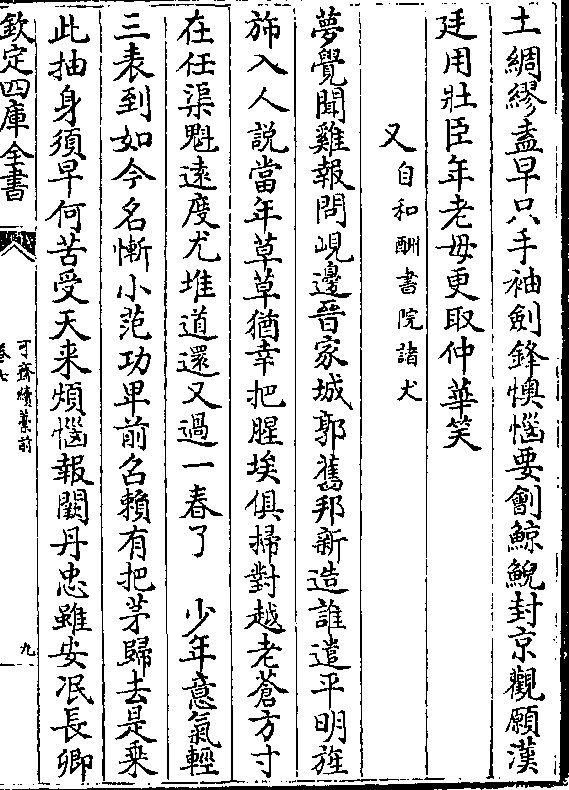 土綢繆盍早只手袖劍鋒懊惱要劊鯨鯢封京觀願漢
廷用壯臣年老毋更取仲華笑
又自和酬書院諸犬
夢覺聞雞報問峴邊晉家城郭舊邦新造誰遣平明旌
斾入人説當年草草猶幸把腥埃俱掃對越老蒼方寸
在任渠魁逺度尤堆道還又過一春了　少年意氣輕
三表到如今名慚小范功卑前召賴有把茅歸去是乗
此抽身須早何苦受天来煩惱報闕丹忠雖安泯長卿
欽定四庫全書
可齋續藁前
卷七
九